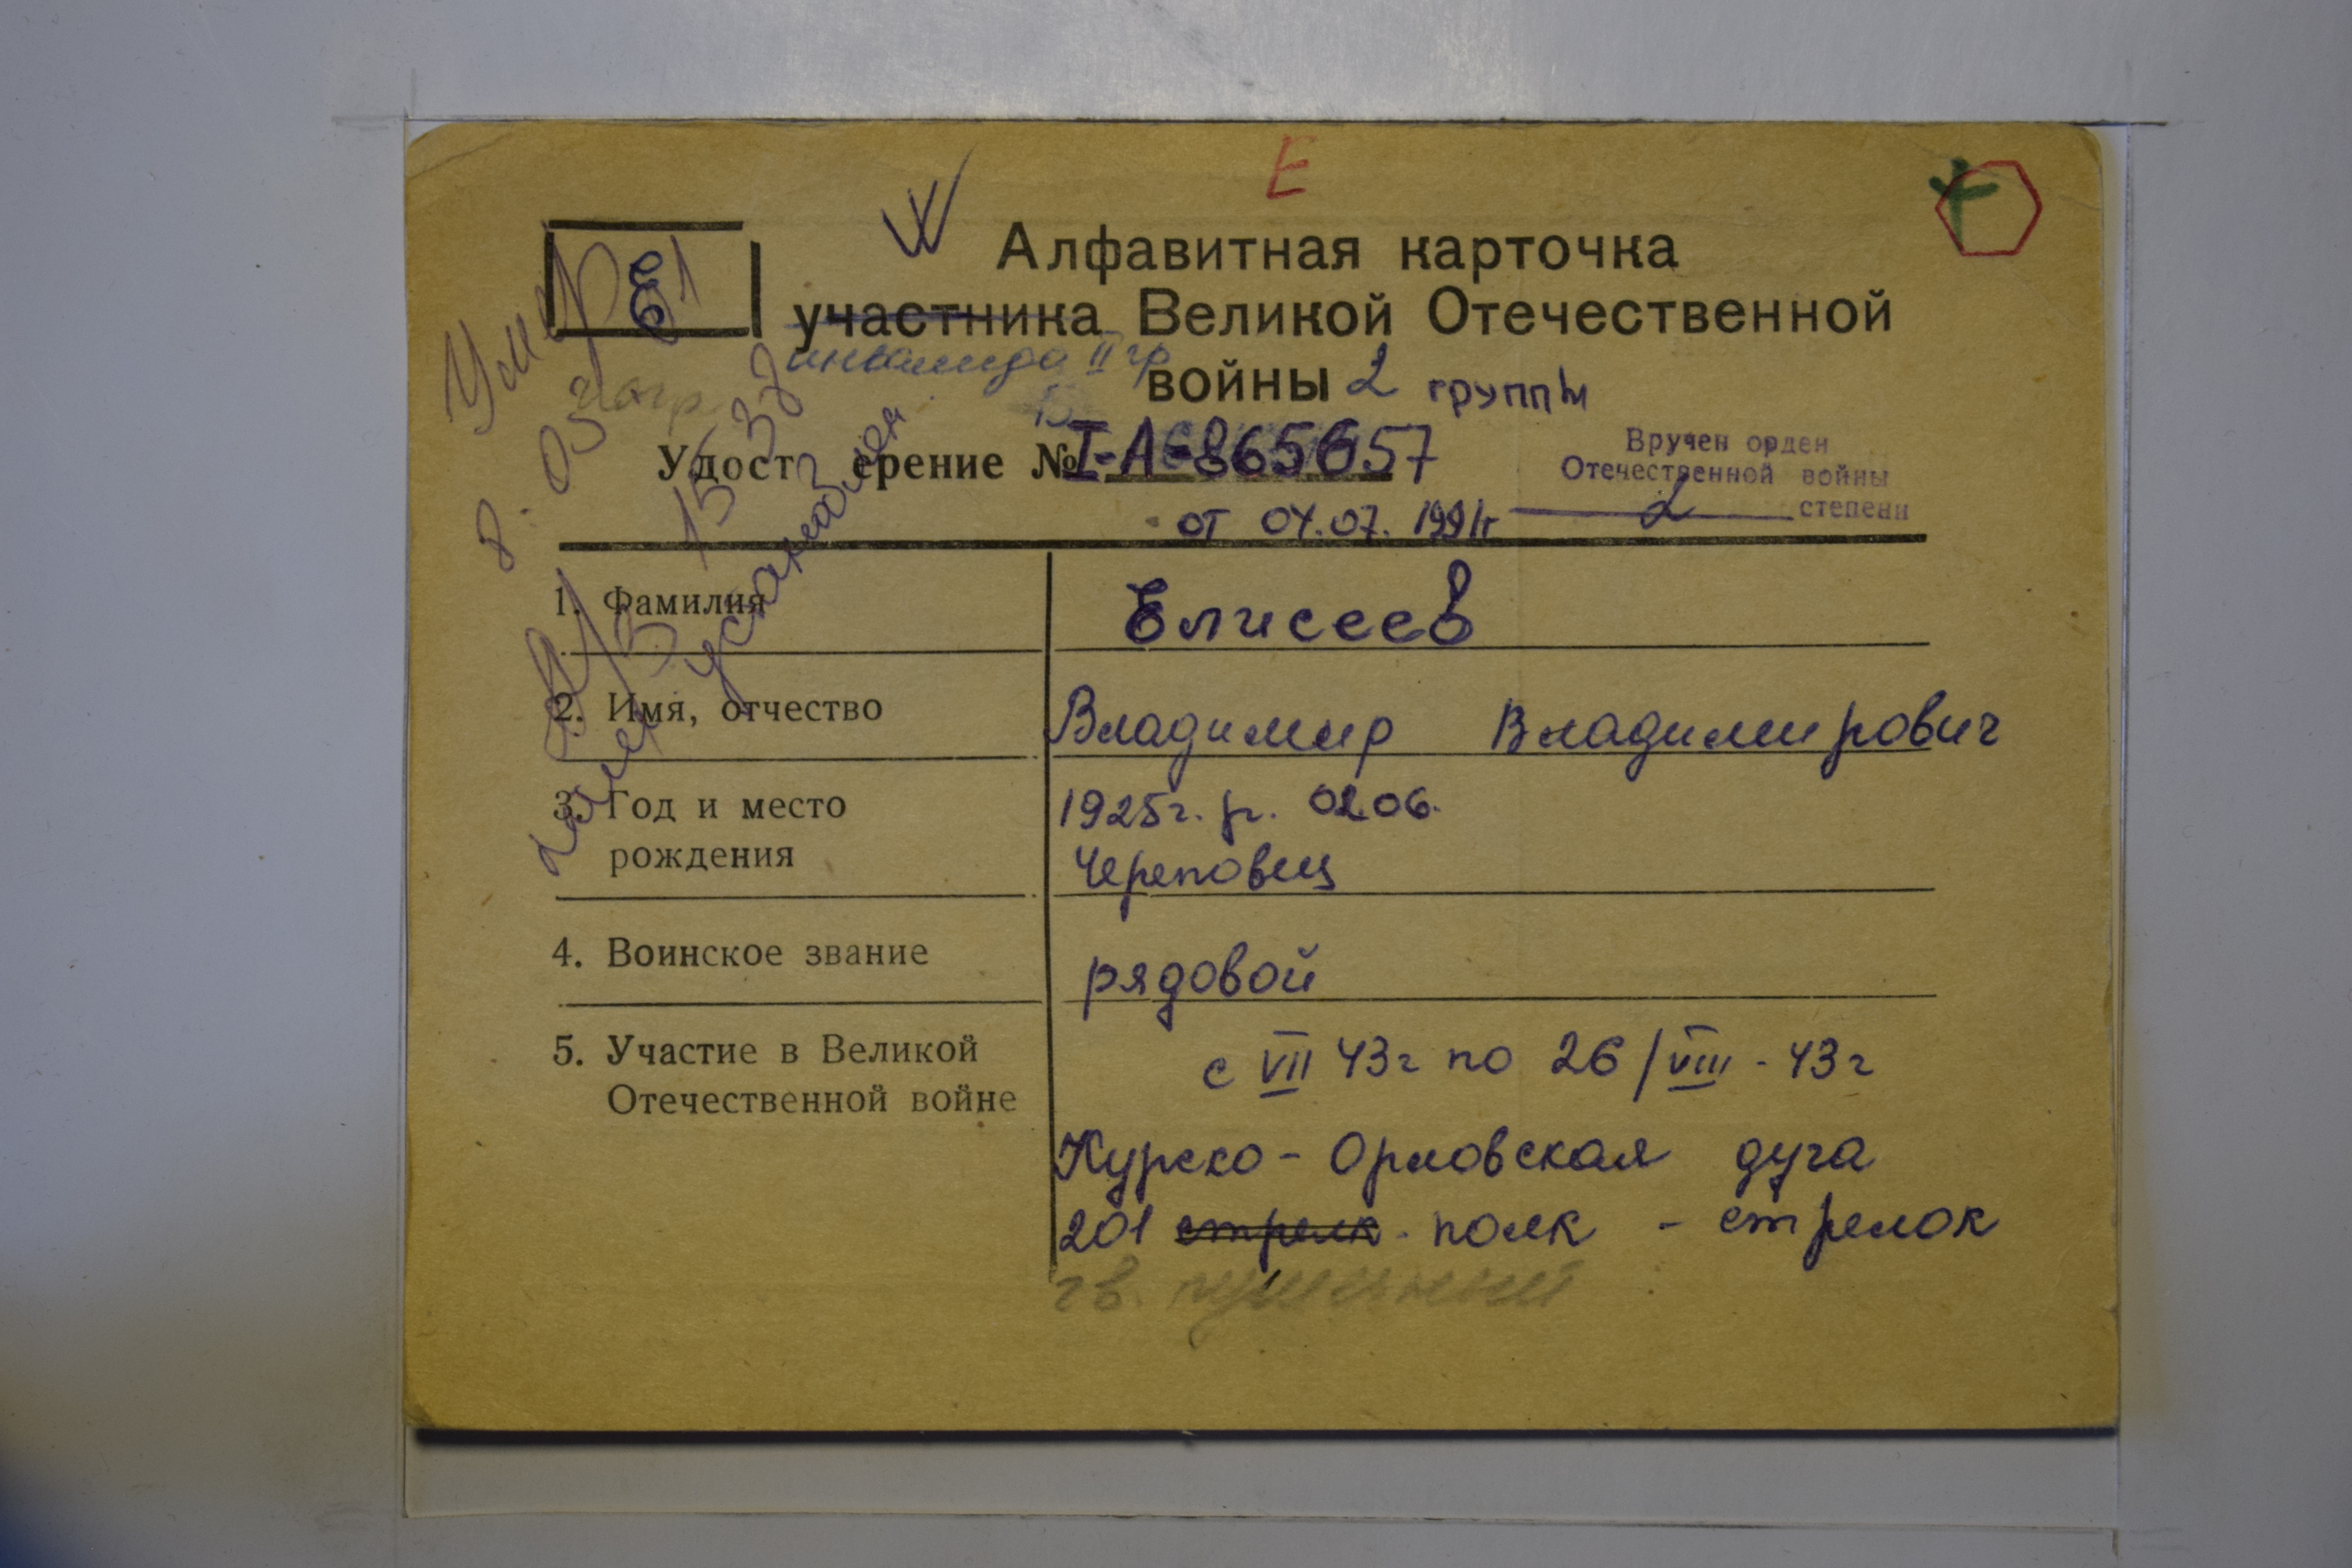 Е
Е
Алфавитная карточка
участника Великой Отечественной
инвалида II гр
войны 2 группы
Удост ерение № I-А-865657
от 04.07. 1991г
Вручен орден
Отечественной войны
2 степени
Умер
8. 05
1. Фамилия
Елисеев
2. Имя, отчество
Владимир Владимирович
3. Год и место
рождения
1925г. р. 02.06.
Череповец
4. Воинское звание
рядовой
5. Участие в Великой
Отечественной войне
с VII 43г по 26/VIII - 43г
Курско-Орловская дуга
201 стрелк. полк - стрелок
гв. пушечный